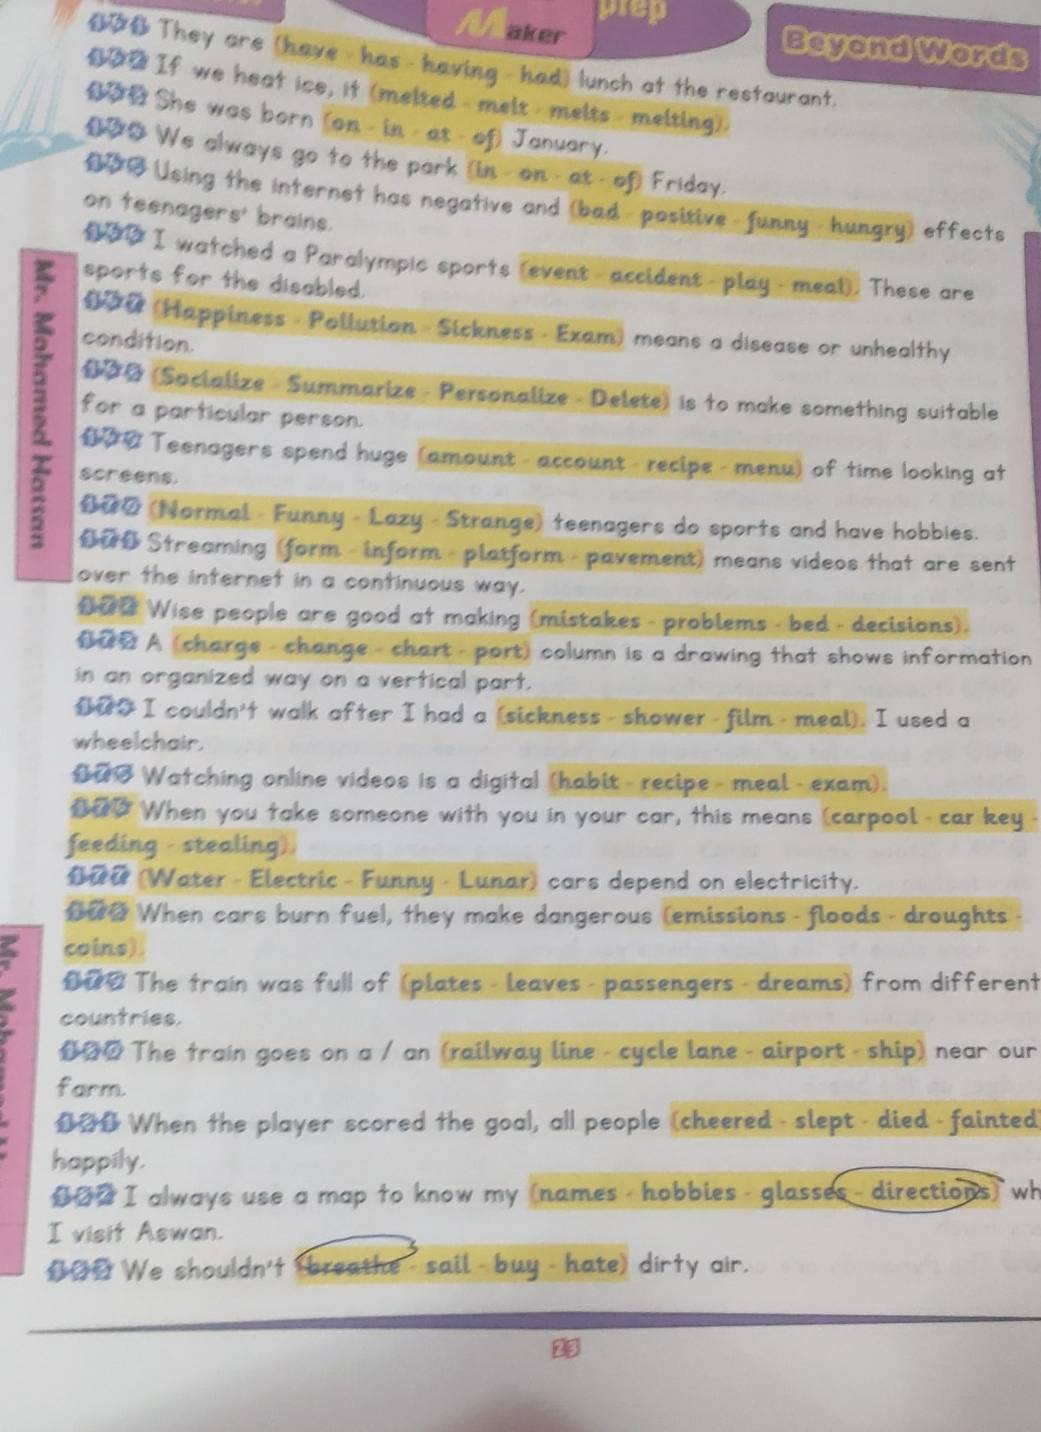 prep
Maker
Beyond Words
161 They are (have - has - having - had) lunch at the restaurant.
162 If we heat ice, it (melted - melt - melts - melting).
163 She was born (on - in - at - of) January.
164 We always go to the park (in - on - at - of) Friday.
165 Using the internet has negative and (bad - positive - funny - hungry) effects
on teenagers' brains.
166 I watched a Paralympic sports (event - accident - play - meal). These are
sports for the disabled.
167 (Happiness - Pollution - Sickness - Exam) means a disease or unhealthy
condition.
168 (Socialize - Summarize - Personalize - Delete) is to make something suitable
for a particular person.
169 Teenagers spend huge (amount - account - recipe - menu) of time looking at
screens.
170 (Normal - Funny - Lazy - Strange) teenagers do sports and have hobbies.
171 Streaming (form - inform - platform - pavement) means videos that are sent
over the internet in a continuous way.
172 Wise people are good at making (mistakes - problems - bed - decisions).
173 A (charge - change - chart - port) column is a drawing that shows information
in an organized way on a vertical part.
174 I couldn't walk after I had a (sickness - shower - film - meal). I used a
wheelchair.
175 Watching online videos is a digital (habit - recipe - meal - exam).
176 When you take someone with you in your car, this means (carpool - car key -
feeding - stealing).
177 (Water - Electric - Funny - Lunar) cars depend on electricity.
178 When cars burn fuel, they make dangerous (emissions - floods - droughts -
coins).
179 The train was full of (plates - leaves - passengers - dreams) from different
countries.
180 The train goes on a / an (railway line - cycle lane - airport - ship) near our
farm.
181 When the player scored the goal, all people (cheered - slept - died - fainted)
happily.
182 I always use a map to know my (names - hobbies - glasses - directions) wh
I visit Aswan.
183 We shouldn't (breathe - sail - buy - hate) dirty air.
Mr. Mohamed Hassan
23